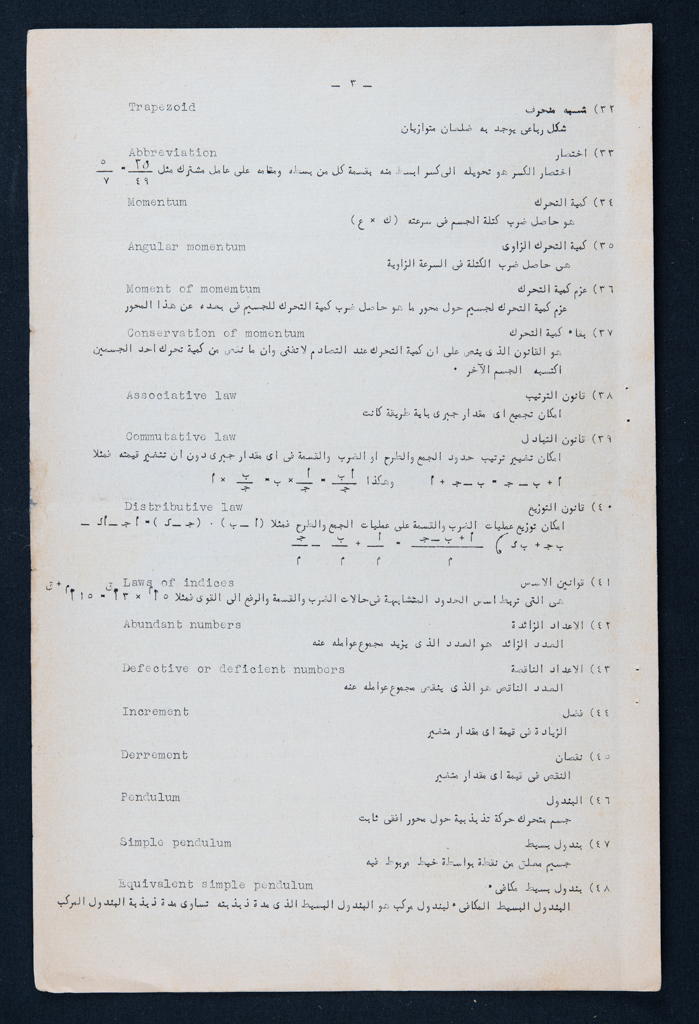 — ٣ —
٣٢) شبه منحرف Trapezoid
شكل رباعي يوجد به ضلعان متوازيان
٣٣) اختصار Abbreviation
اختصار الكسر هو تحويله الى كسر ابسط منه بقسمة كل من بسطه ومقامه على عامل مشترك مثل ٣٥/٤٩ = ٥/٧
٣٤) كمية التحرك Momentum
هو حاصل ضرب كتلة الجسم فى سرعته (ك × ع)
٣٥) كمية التحرك الزاوى Angular momentum
هى حاصل ضرب الكتلة فى السرعة الزاوية
٣٦) عزم كمية التحرك Moment of momemtum
عزم كمية التحرك لجسيم حول محور ما هو حاصل ضرب كمية التحرك للجسيم فى بعده عن هذا المحور
٣٧) بقاء كمية التحرك Conservation of momentum
هو القانون الذى ينص على ان كمية التحرك عند التصادم لا تفنى وان ما نقص من كمية تحرك احد الجسمين
اكتسبه الجسم الآخر .
٣٨) قانون الترتيب Associative law
امكان تجميع اى مقدار جبرى باية طريقة كانت
٣٩) قانون التبادل Commutative law
امكان تغيير ترتيب حدود الجمع والطرح او الضرب والقسمة فى اى مقدار جبرى دون ان تتغير قيمته فمثلا
أ + ب – جـ = ب – جـ + أ وهكذا أ ب/جـ = أ/جـ × ب = ب/جـ × أ
٤٠) قانون التوزيع Distributive law
امكان توزيع عمليات الضرب والقسمة على عمليات الجمع والطرح فمثلا (أ – ب) . (جـ – ك) = أ جـ – أك –
ب جـ + ب ك ) أ + ب – جـ/م = أ/م + ب/م – جـ/م
٤١) قوانين الاسس Laws of indices
هى التى تربط اسس الحدود المتشابهة فى حالات الضرب والقسمة والرفع الى القوى فمثلا ٥أ^م × ٣أ^ق = ١٥أ^م+ق
٤٢) الاعداد الزائدة Abundant numbers
العدد الزائد هو العدد الذى يزيد مجموع عوامله عنه
٤٣) الاعداد الناقصة Defective or deficient numbers
العدد الناقص هو الذى ينقص مجموع عوامله عنه
٤٤) فضل Increment
الزيادة فى قيمة اى مقدار متغير
٤٥) نقصان Derrement
النقص فى قيمة اى مقدار متغير
٤٦) البندول Pendulum
جسم متحرك حركة تذبذبية حول محور افقى ثابت
٤٧) بندول بسيط Simple pendulum
جسيم معلق من نقطة بواسطة خيط مربوط فيه
٤٨) بندول بسيط مكافىء Equivalent simple pendulum
البندول البسيط المكافىء لبندول مركب هو البندول البسيط الذى مدة ذبذبته تساوى مدة ذبذبة البندول المركب